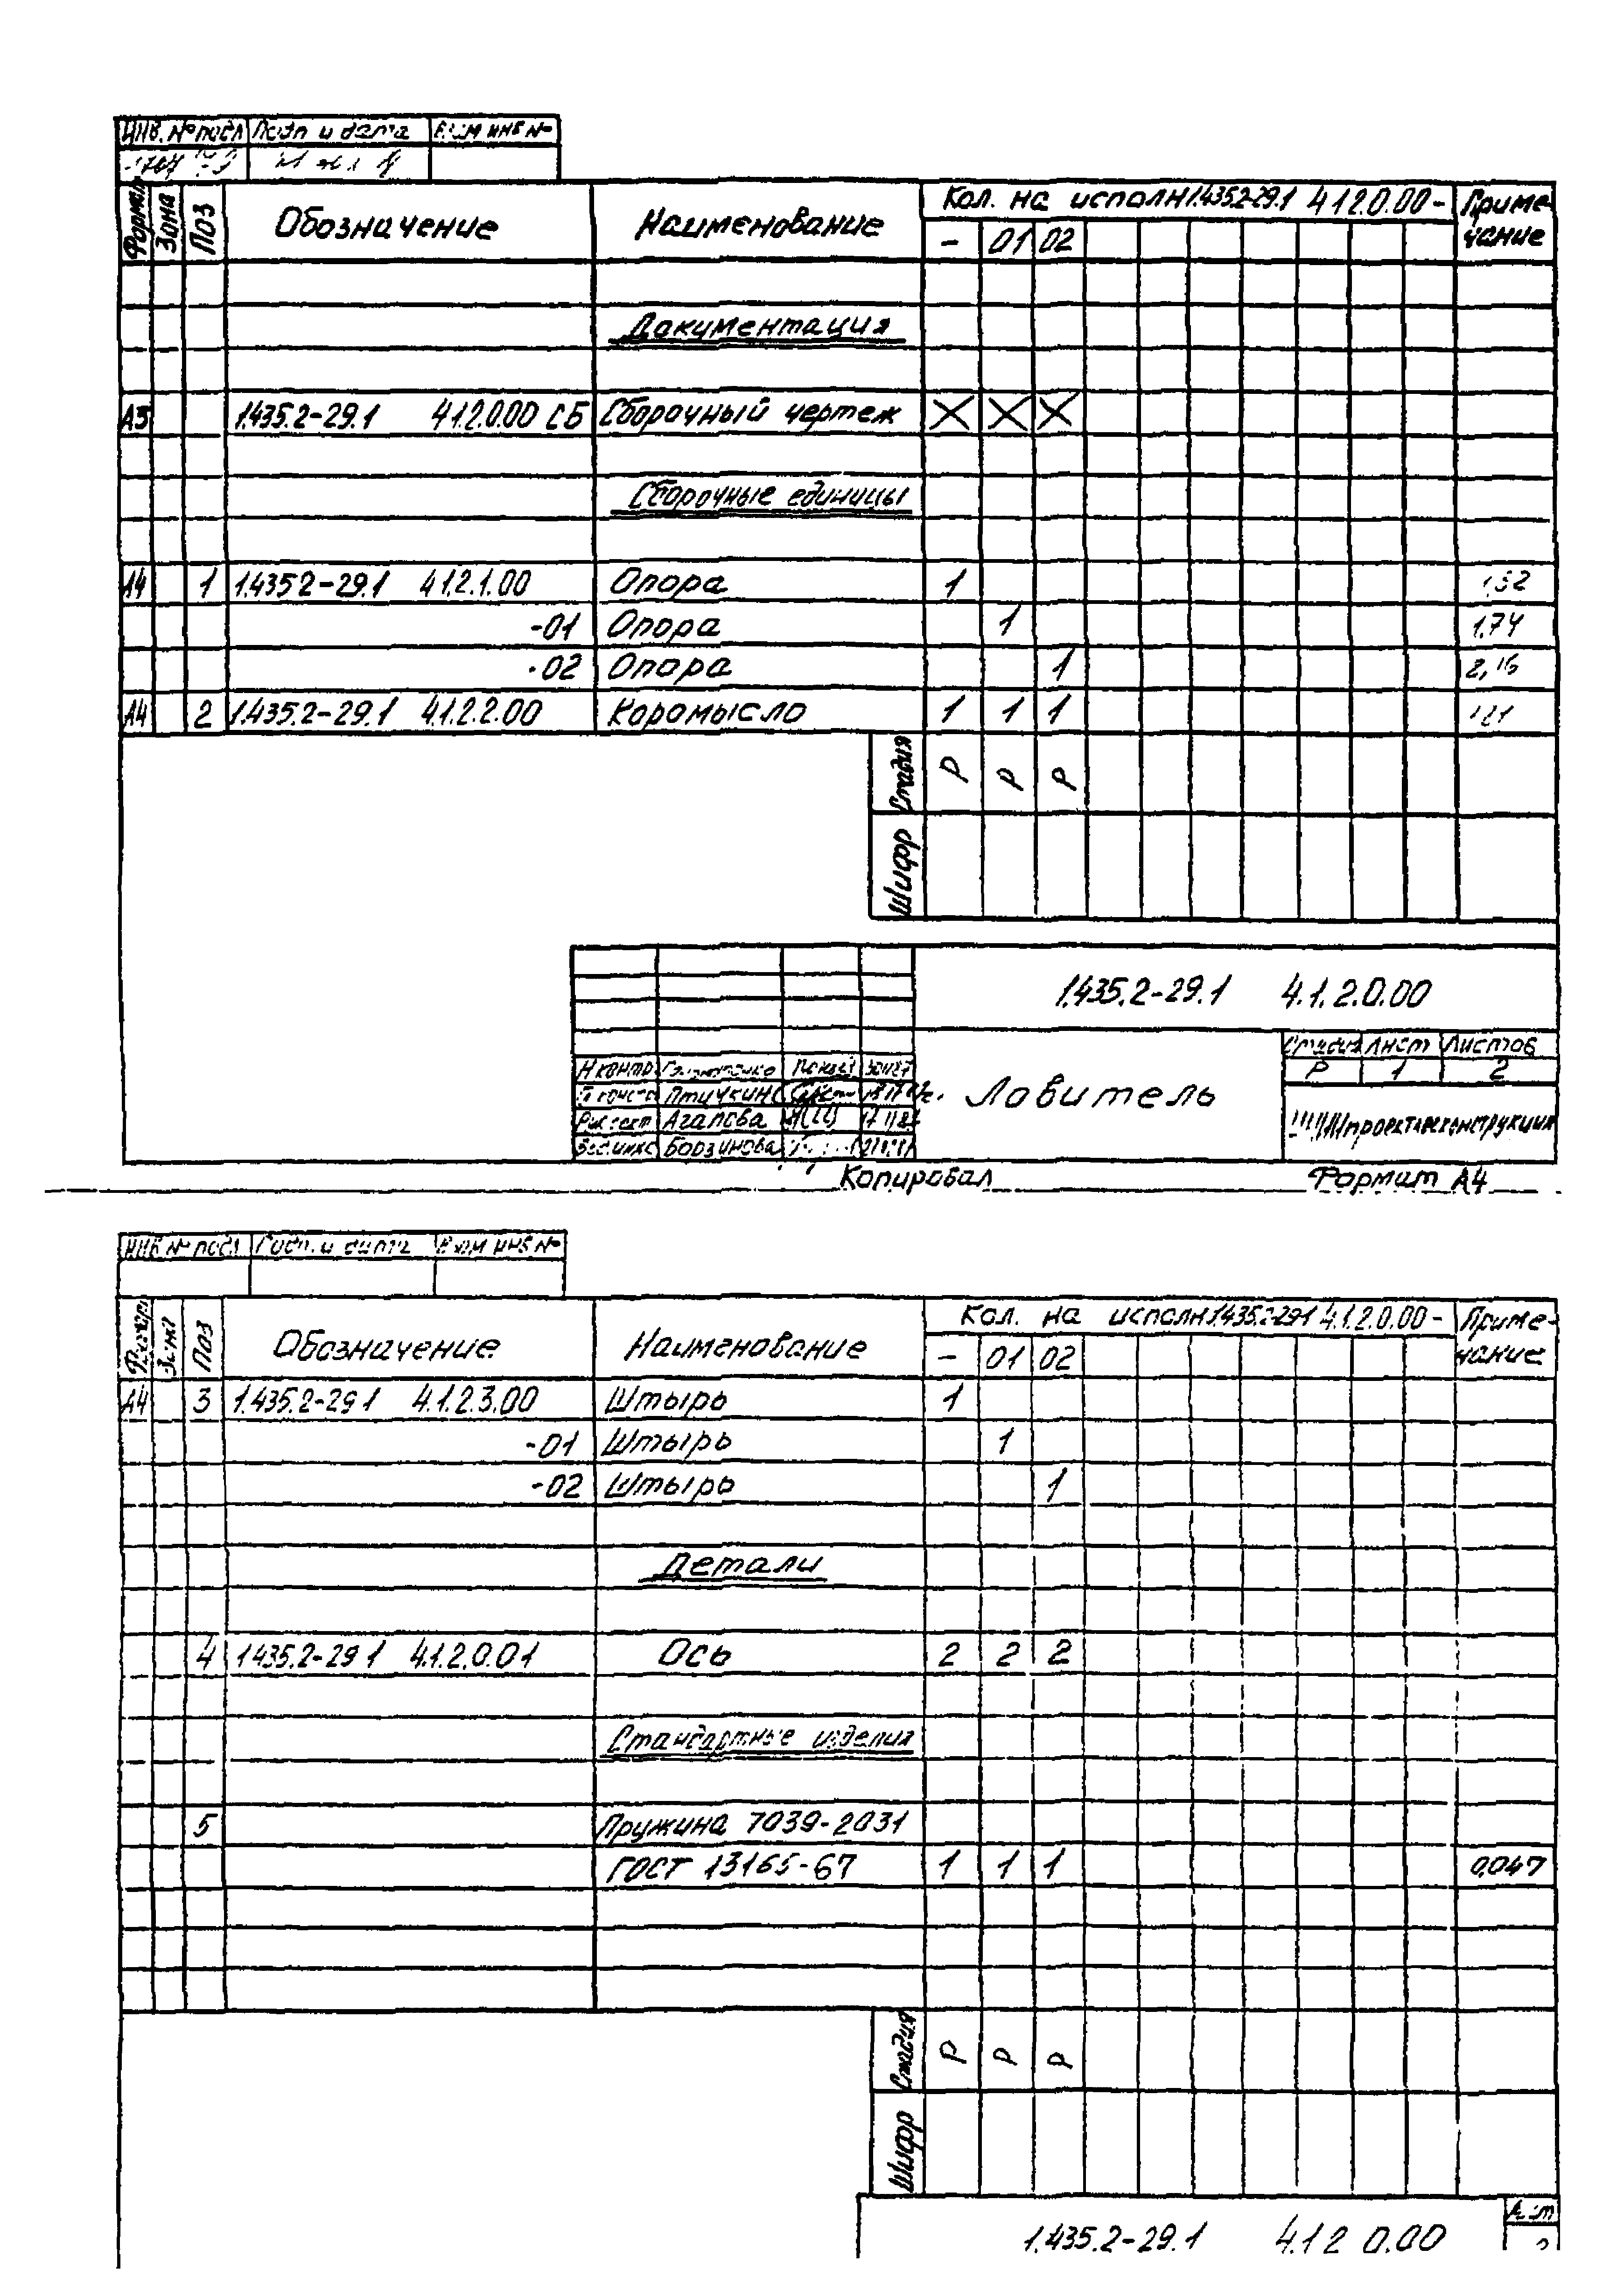 Инв. № подл Подп и дата Взам инв №
Формат Зона Поз Обозначение Наименование Кол. на исполн 1.435.2-29.1 4.1.2.0.00- Примечание
- 01 02
Документация
А3 1.435.2-29.1 4.1.2.0.00 СБ Сборочный чертеж X X X
Сборочные единицы
А4 1 1.435.2-29.1 4.1.2.1.00 Опора 1
-01 Опора 1 1,74
-02 Опора 1 2,16
А4 2 1.435.2-29.1 4.1.2.2.00 Коромысло 1 1 1
Стадия Р Р Р
Шифр
1.435.2-29.1 4.1.2.0.00
Н контр
Птичкин
Агапова
Борзинова
Ловитель
Стадия Лист Листов
Р 1 2
Копировал Формат А4
Инв № подл Подп. и дата Взам инв №
Формат Зона Поз Обозначение Наименование Кол. на исполн 1.435.2-29.1 4.1.2.0.00- Примечание
- 01 02
А4 3 1.435.2-29.1 4.1.2.3.00 Штырь 1
-01 Штырь 1
-02 Штырь 1
Детали
4 1.435.2-29.1 4.1.2.0.01 Ось 2 2 2
Стандартные изделия
5 Пружина 7039-2031
ГОСТ 13165-67 1 1 1 0,047
Стадия Р Р Р
Шифр
1.435.2-29.1 4.1.2.0.00
Лист
2